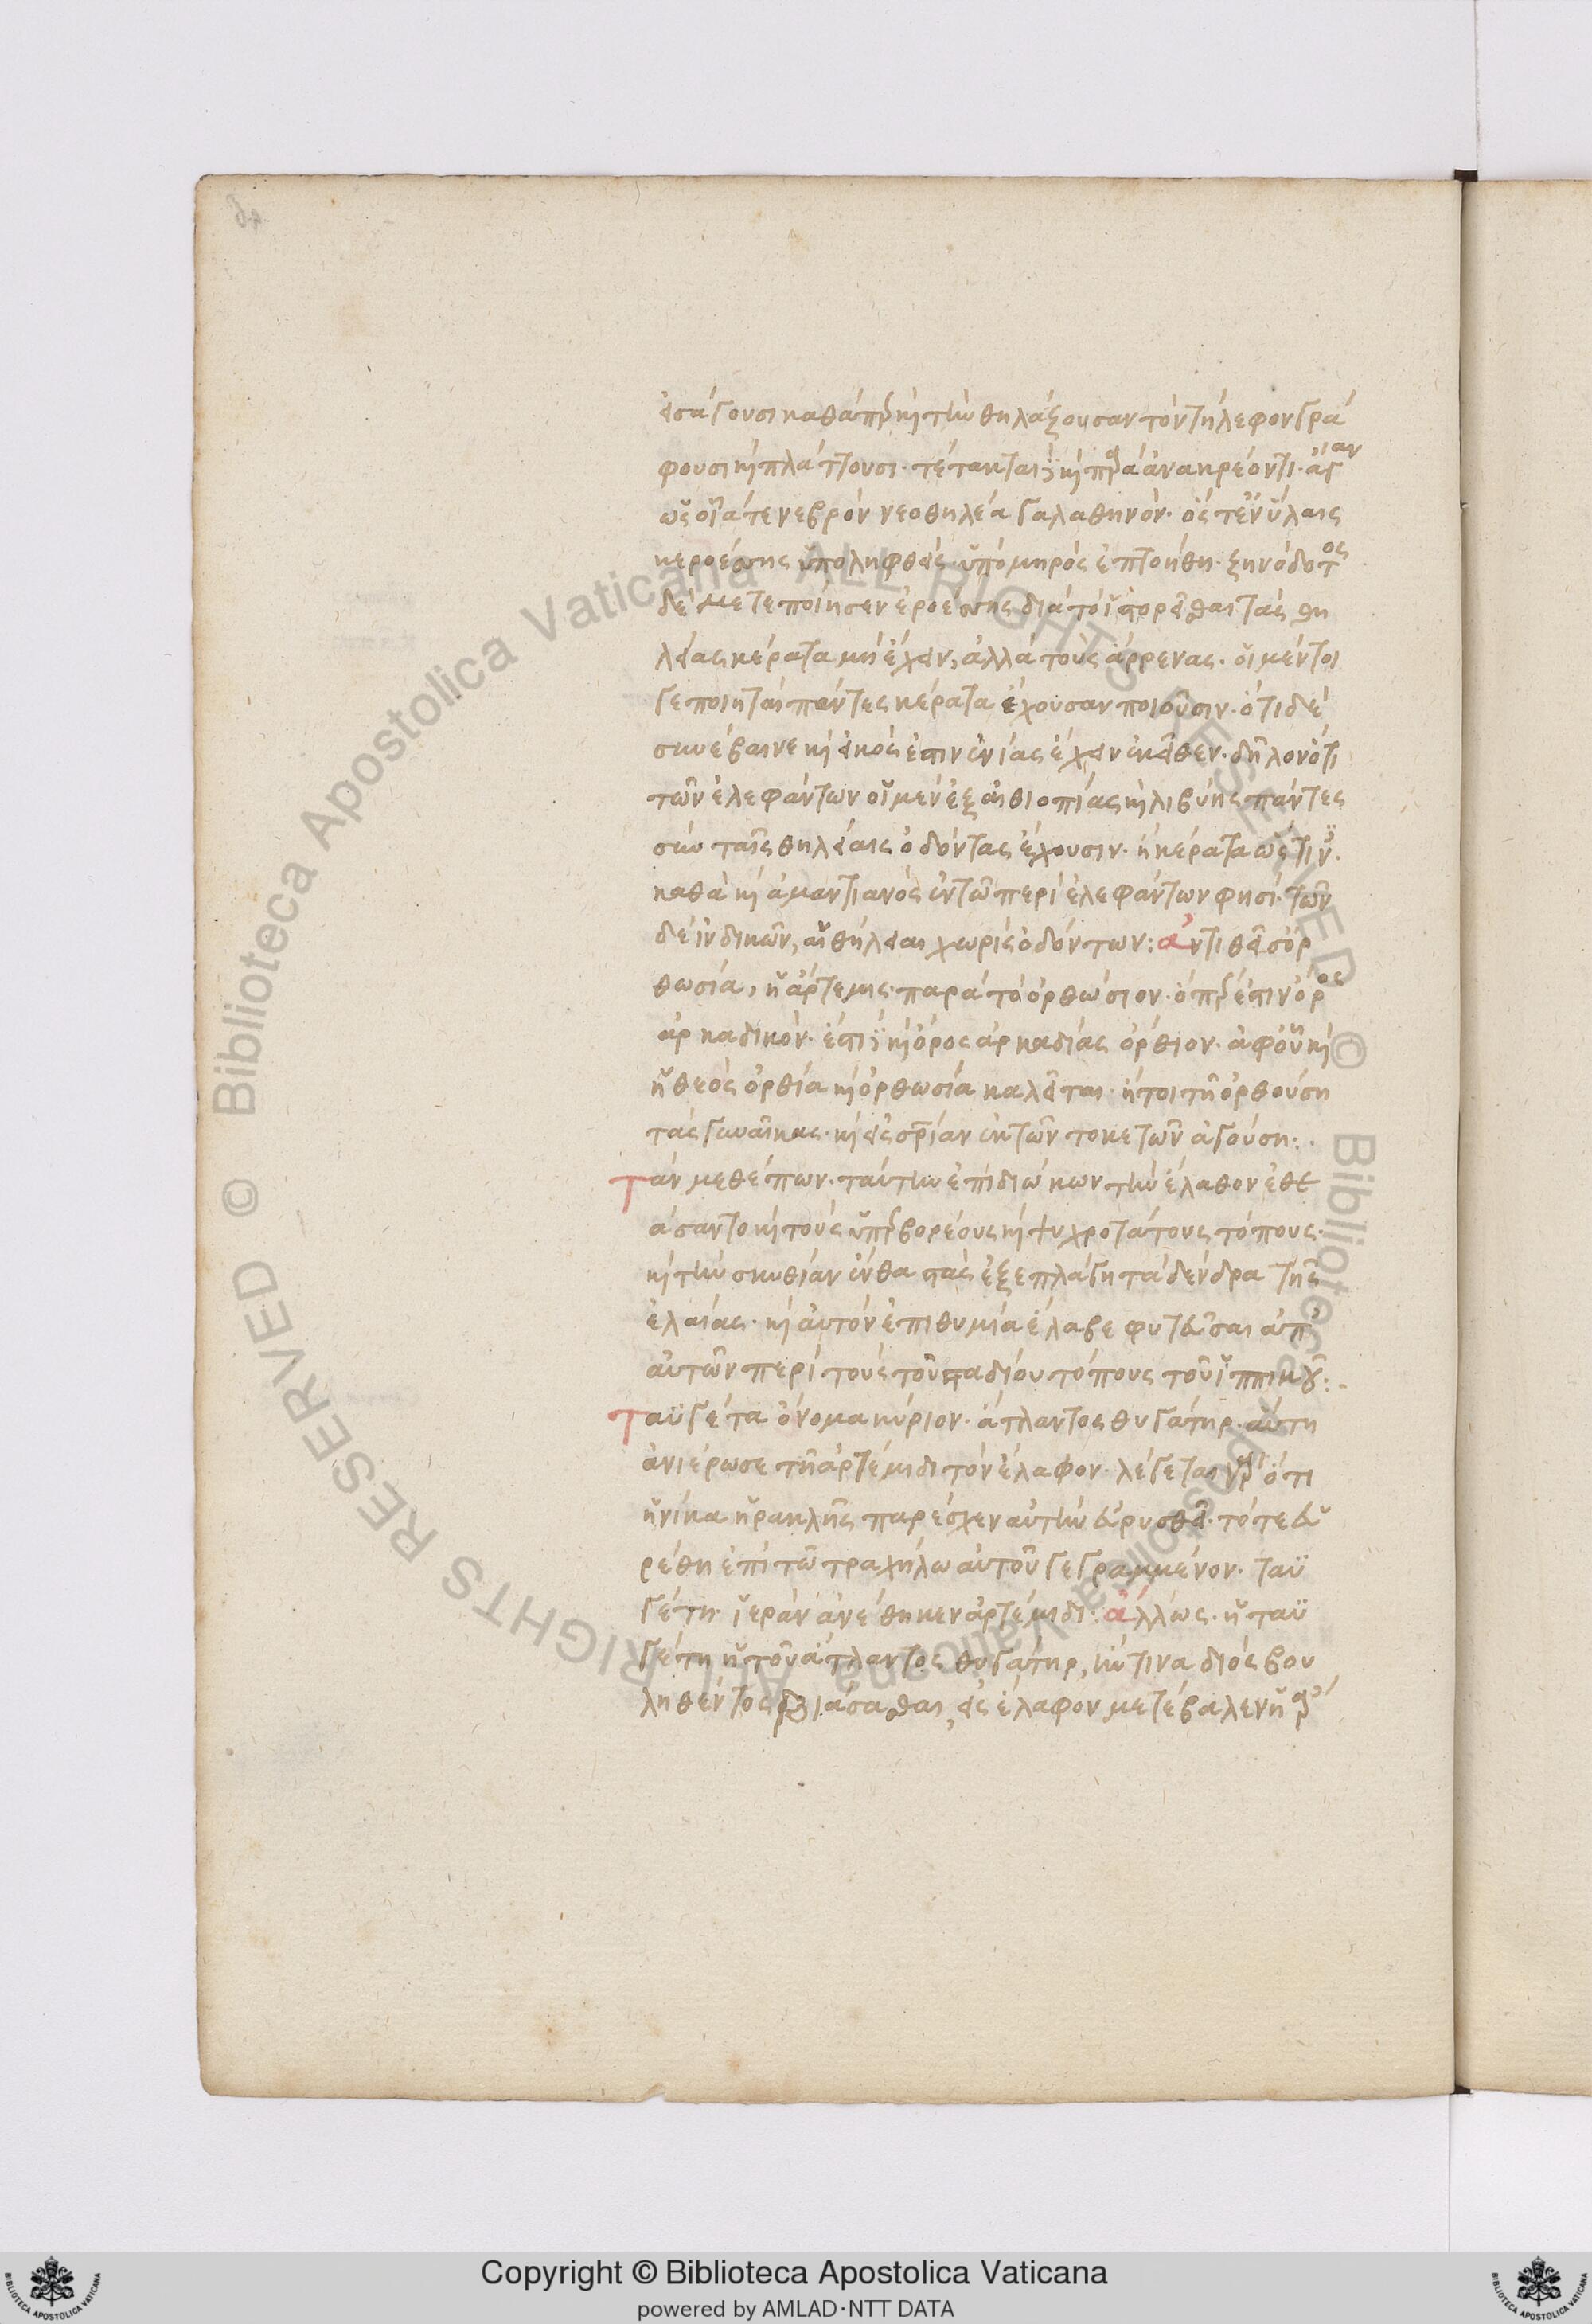 εἰσάγουσι καθάπερ καὶ τὴν θηλάζουσαν τὸν τήλεφον γρά
φουσι καὶ πλάττουσι. τέτακται δὲ καὶ παρὰ ἀνακρέοντι. ἀγαν
ὡς οἷά τε νεβρὸν νεοθηλέα γαλαθηνόν. ὅς τ' ἐν ὕλαις
κεροέσσης ὑπολειφθεὶς ὑπὸ μηρὸς ἐπτοήθη. ζηνόδοτος
δὲ μετεποίησεν ἐροέσσης διὰ τὸ ἱστορεῖσθαι τὰς θη
λείας κέρατα μὴ ἔχειν, ἀλλὰ τοὺς ἄρρενας. οἱ μέντοι
γε ποιηταὶ πάντες κέρατα ἔχουσαν ποιοῦσιν. ὅτι δὲ
συνέβαινε καὶ εἰκός ἐστιν ἐνίας ἔχειν ἐκεῖθεν. δῆλον ὅτι
τῶν ἐλεφάντων οἱ μὲν ἐξ αἰθιοπίας καὶ λιβύης πάντες
σὺν ταῖς θηλείαις ὀδόντας ἔχουσιν. ἢ κέρατα ὥς τινες.
καθὰ καὶ ἀμαντιανὸς ἐν τῷ περὶ ἐλεφάντων φησί. τῶν
δὲ ἰνδικῶν, αἱ θήλειαι χωρὶς ὀδόντων: ἀντιθεῖσ ὀρ
θωσία, ἡ ἄρτεμις. παρὰ τὸ ὀρθώσιον. ὅπερ ἐστὶν ὄρος
ἀρκαδικόν. ἔστι δὲ καὶ ὄρος ἀρκαδίας ὄρθιον. ἀφ' οὗ καὶ
ἡ θεὸς ὀρθία καὶ ὀρθωσία καλεῖται. ἤτοι τῇ ὀρθούσῃ
τὰς γυναῖκας. καὶ εἰς σωτηρίαν ἐκ τῶν τοκετῶν ἀγούσῃ:.
Τὰν μεθέπων. ταύτην ἐπιδιώκων τὴν ἔλαθον ἐθε
άσαντο καὶ τοὺς ὑπερβορέους καὶ ψυχροτάτους τόπους.
καὶ τὴν σκυθίαν ἔνθα στὰς ἐξεπλάγη τὰ δένδρα τῆς
ἐλαίας. καὶ αὐτὸν ἐπιθυμία ἔλαβε φυτεῦσαι ἀπ'
αὐτῶν περὶ τοὺς τοῦ σταδίου τόπους τοῦ ἱππικοῦ:.
Ταϋγέτα ὄνομα κύριον. ἄτλαντος θυγάτηρ. αὕτη
ἀνιέρωσε τῇ ἀρτέμιδι τὸν ἔλαφον. λέγεται γὰρ ὅτι
ἡνίκα ἡρακλῆς παρέσχεν αὐτὴν εὐρυσθεῖ. τότε εὑ
ρέθη ἐπὶ τῷ τραχήλῳ αὐτοῦ γεγραμμένον. ταϋ
γέτη ἱερὰν ἀνέθηκεν ἀρτέμιδι: ἄλλως. ἡ ταϋ
γέτη ἡ τοῦ ἄτλαντος θυγάτηρ, ἥντινα διὸς βου
ληθέντος βιάσασθαι, εἰς ἔλαφον μετέβαλεν ἡ ἄρ
Copyright © Biblioteca Apostolica Vaticana
powered by AMLAD·NTT DATA